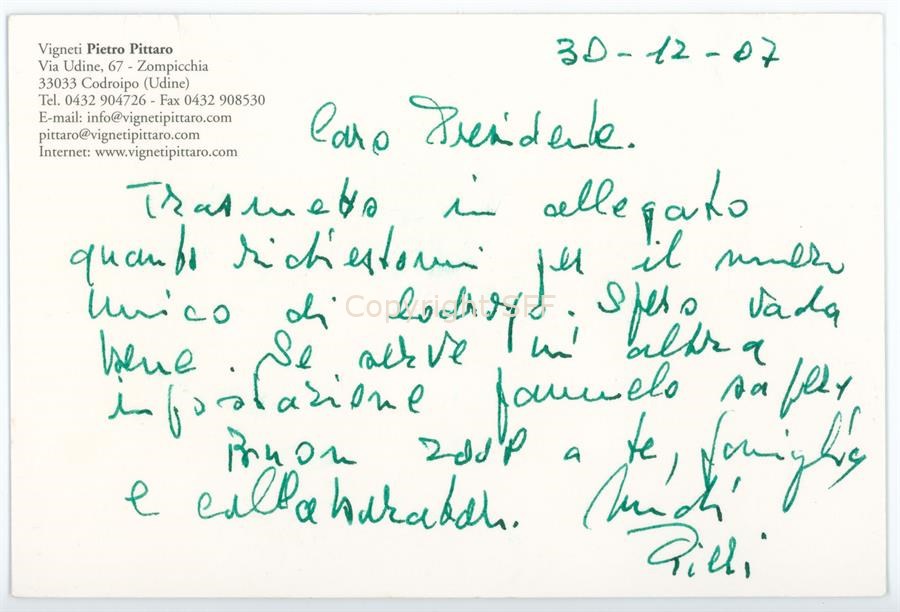 Vigneti Pietro Pittaro
Via Udine, 67 - Zompicchia
33033 Codroipo (Udine)
Tel. 0432 904726 - Fax 0432 908530
E-mail: info@vignetipittaro.com
pittaro@vignetipittaro.com
Internet: www.vignetipittaro.com
30-12-07
Caro Presidente.
Trasmetto in allegato
quanto richiestomi per il numero
unico di Codroipo. Spero vada
bene. Se serve un'altra
informazione fammelo sapere
Buon 2008 a te, famiglia
e collaboratori.
Copyright SFF